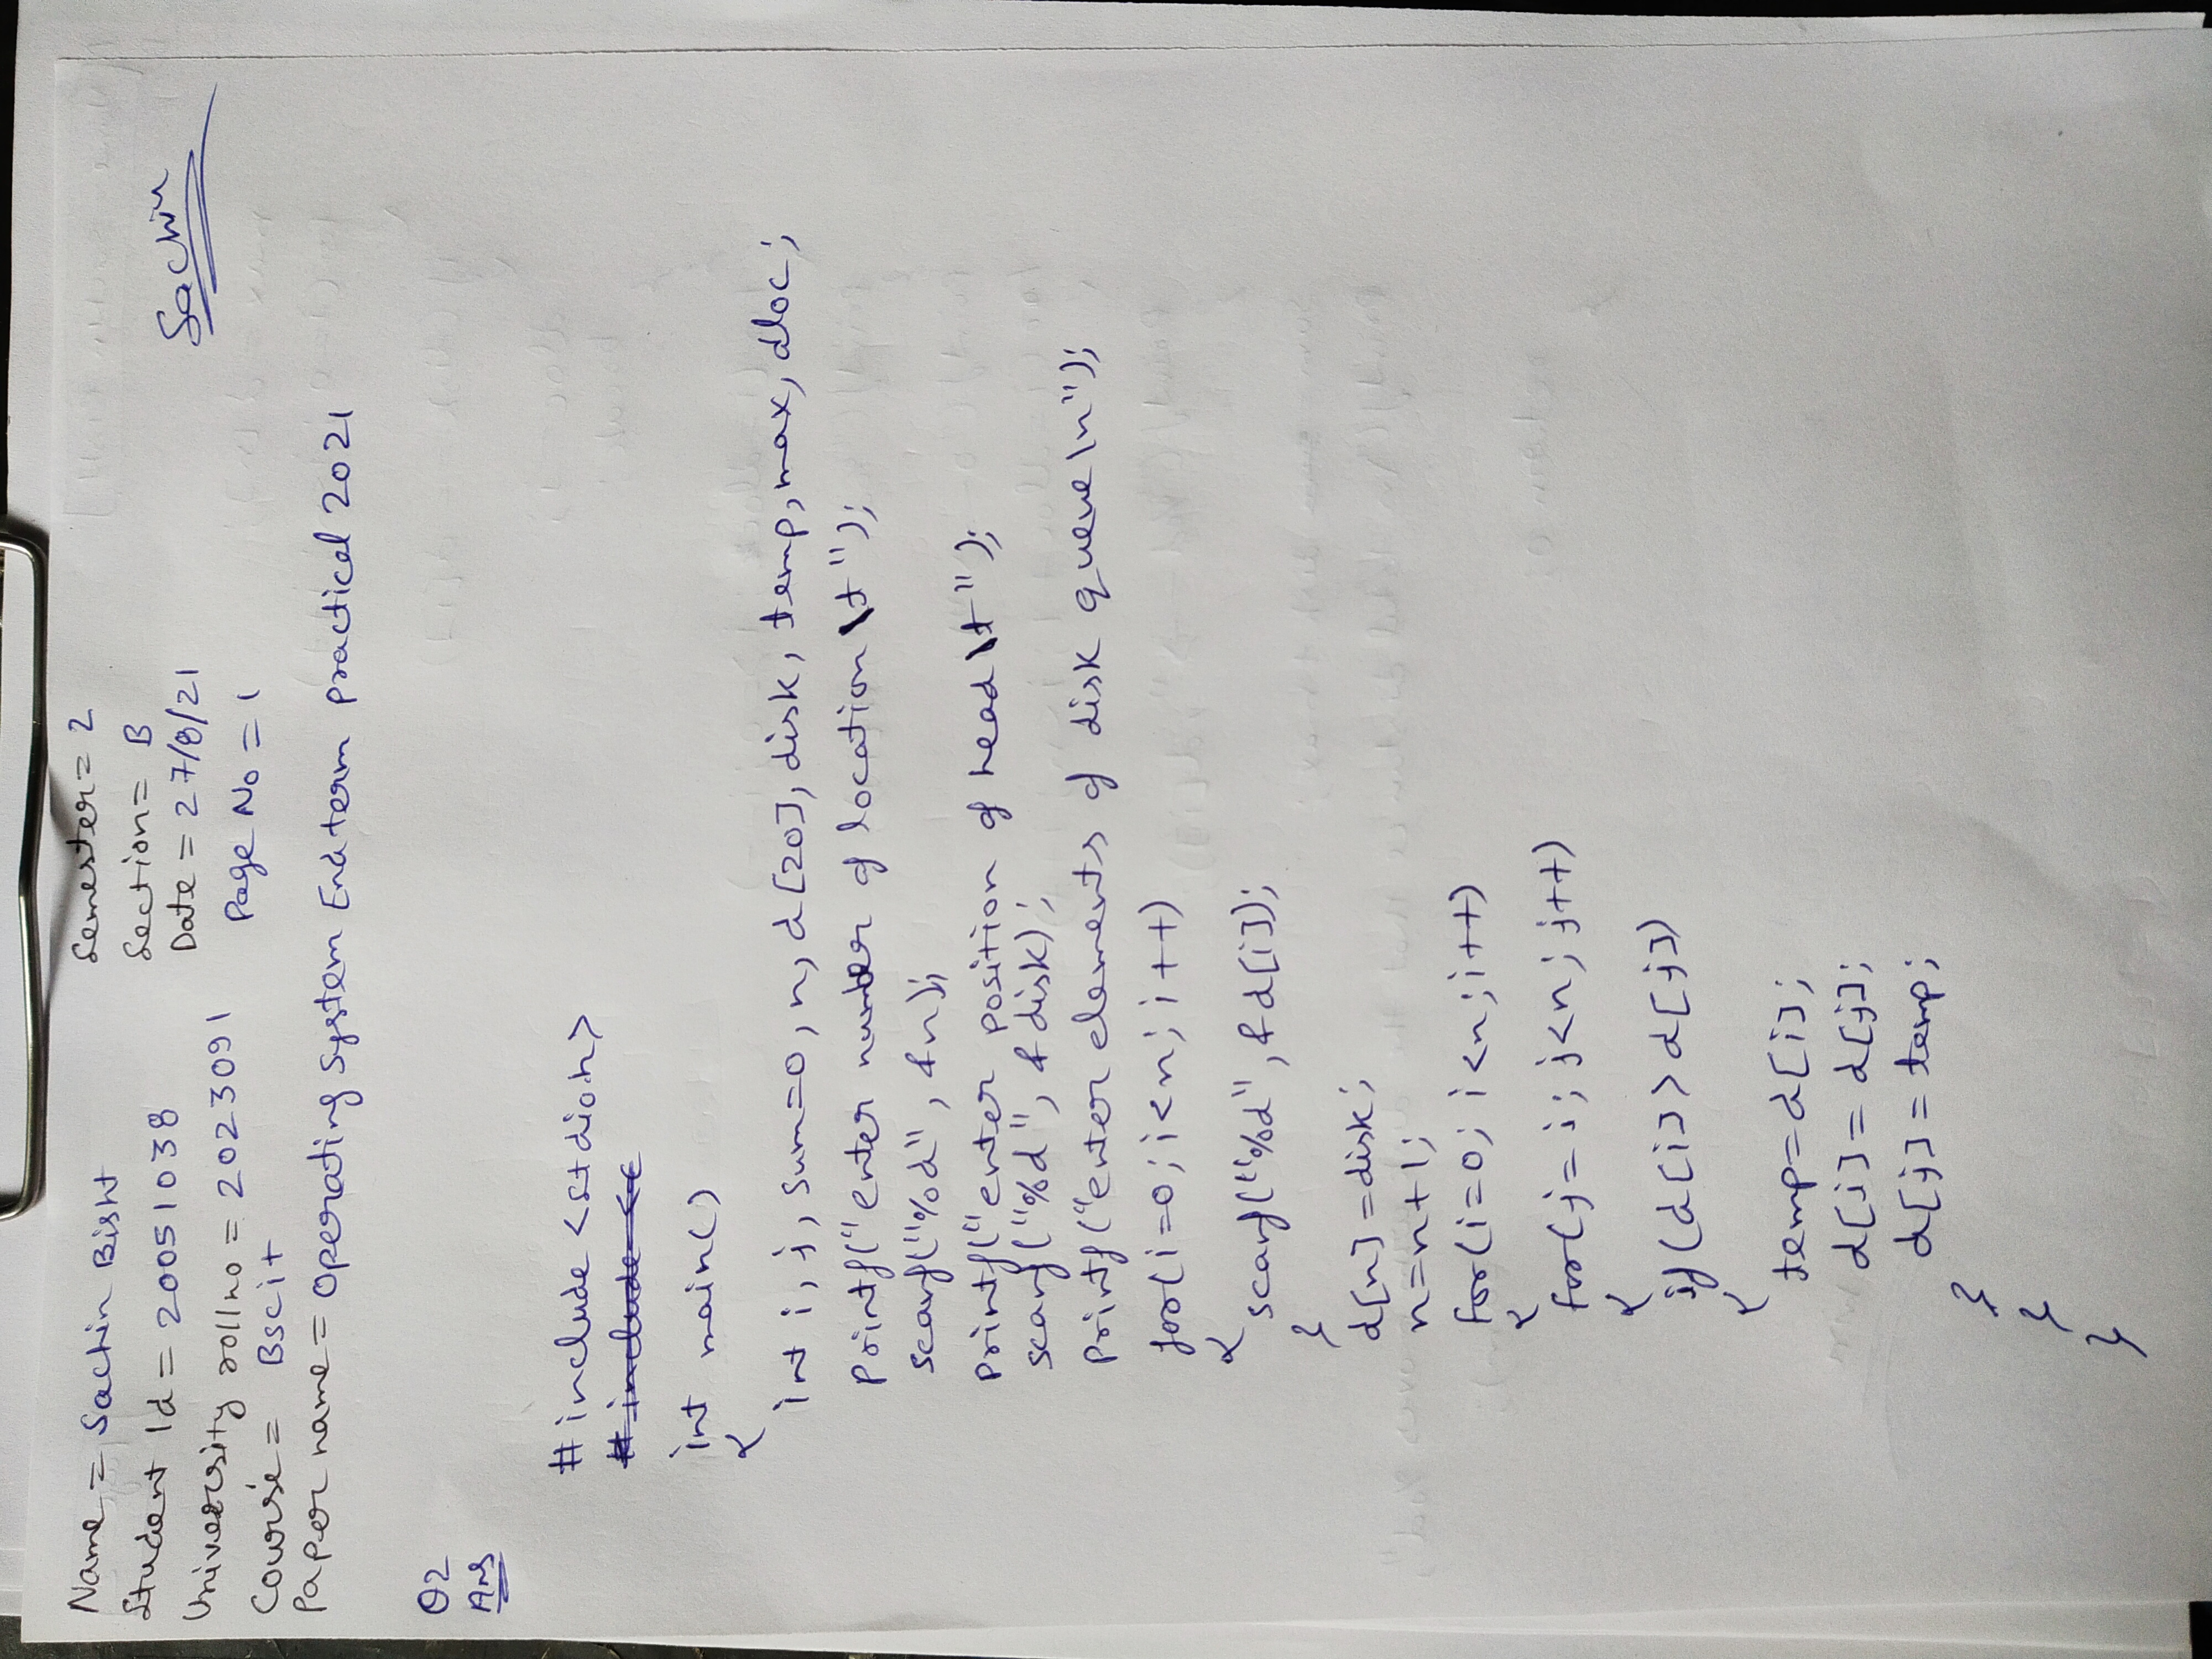 Name = Sachin Bisht
Student Id = 20051038
University rollno = 2023091
Course = Bscit
Paper name = Operating System End term practical 2021
Semester = 2
Section = B
Date = 27/8/21
Page No = 1
Sachin
Q2
Ans
#include <stdio.h>
#include <c
int main()
{
int i, j, sum=0, n, d[20], disk, temp, max, dloc;
printf("enter number of location \t");
scanf("%d", &n);
printf("enter position of head \t");
scanf("%d", &disk);
printf("enter elements of disk queue\n");
for(i=0; i<n; i++)
{
scanf("%d", &d[i]);
}
d[n]=disk;
n=n+1;
for(i=0; i<n; i++)
{
for(j=i; j<n; j++)
{
if(d[i]>d[j])
{
temp=d[i];
d[i]=d[j];
d[j]=temp;
}
}
}